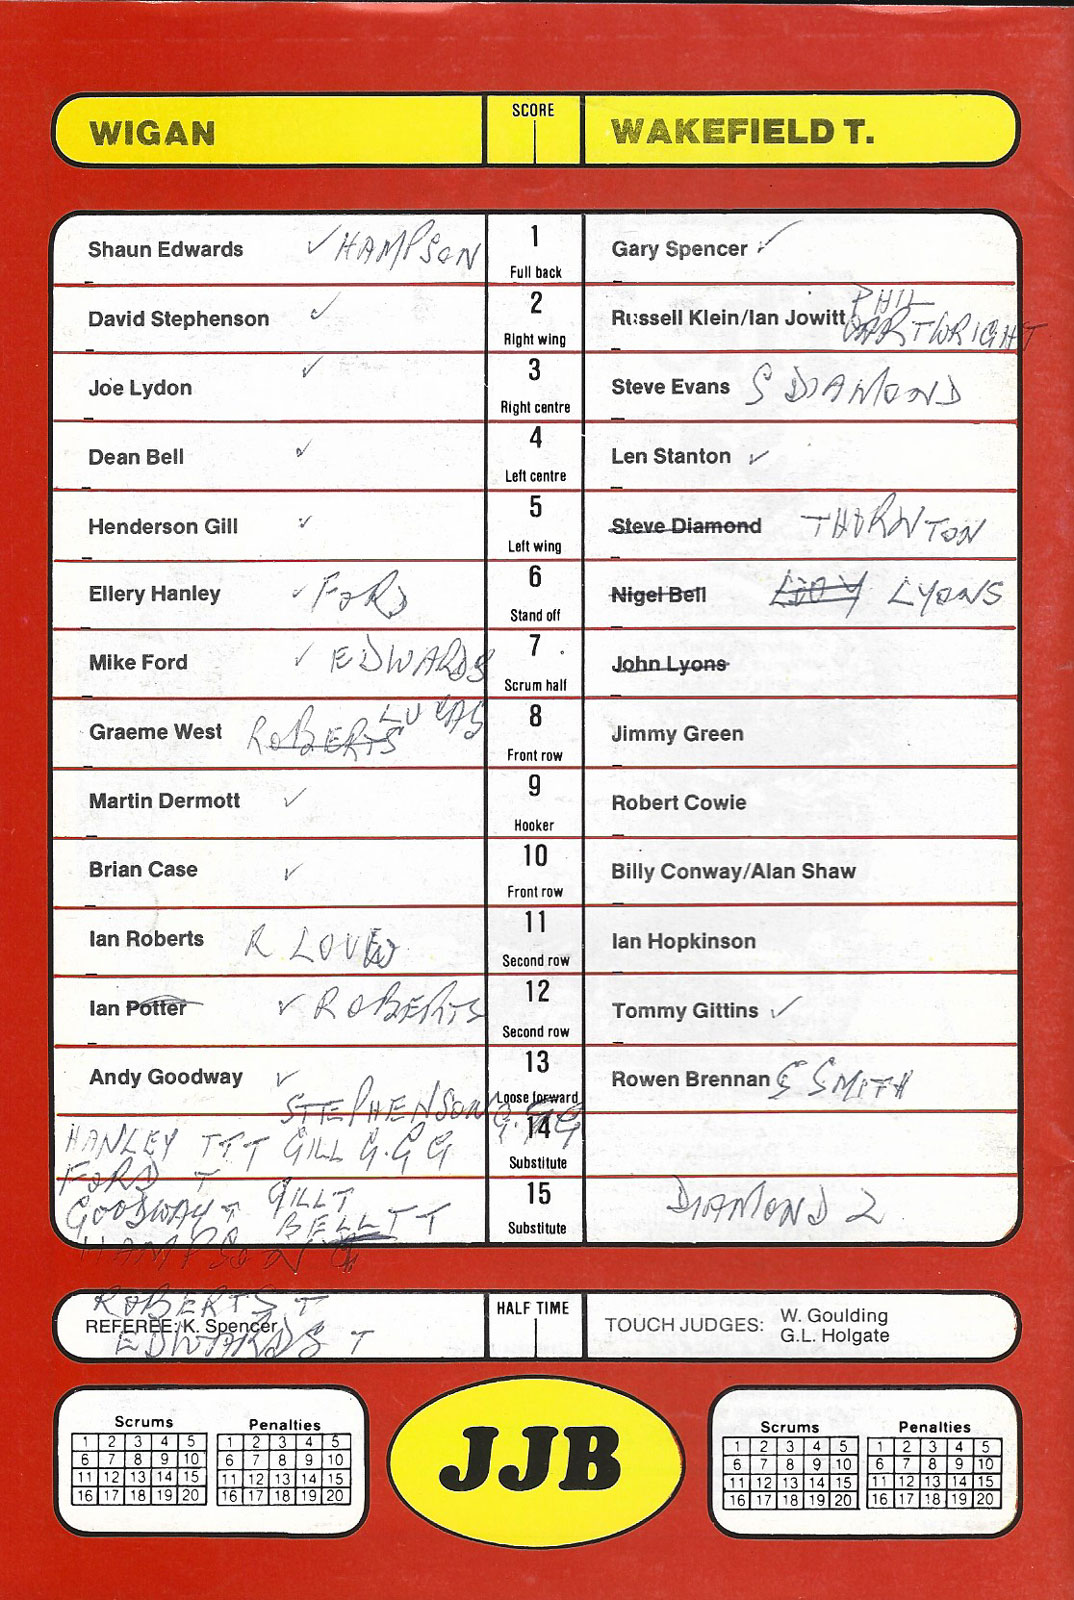 WIGAN SCORE WAKEFIELD T.
Shaun Edwards ✓ HAMPSON 1 Full back Gary Spencer ✓
David Stephenson ✓ 2 Right wing Russell Klein/Ian Jowitt PHIL CARTWRIGHT
Joe Lydon ✓ 3 Right centre Steve Evans S DIAMOND
Dean Bell ✓ 4 Left centre Len Stanton ✓
Henderson Gill ✓ 5 Left wing Steve Diamond THORNTON
Ellery Hanley ✓ FORD 6 Stand off Nigel Bell LYONS
Mike Ford ✓ EDWARDS 7 Scrum half John Lyons
Graeme West ROBERTS LUCAS 8 Front row Jimmy Green
Martin Dermott ✓ 9 Hooker Robert Cowie
Brian Case ✓ 10 Front row Billy Conway/Alan Shaw
Ian Roberts R LOUW 11 Second row Ian Hopkinson
Ian Potter ✓ ROBERTS 12 Second row Tommy Gittins ✓
Andy Goodway ✓ 13 Loose forward Rowen Brennan S SMITH
STEPHENSON
HANLEY TTT GILL G.GG 14 Substitute
FORD T
GOODWAY T GILL T 15 Substitute DIAMOND 2
BELL TT
HAMPSON
ROBERTS T HALF TIME
REFEREE: K. Spencer TOUCH JUDGES: W. Goulding
G.L. Holgate
EDWARDS T
Scrums Penalties
1 2 3 4 5 1 2 3 4 5
6 7 8 9 10 6 7 8 9 10
11 12 13 14 15 11 12 13 14 15
16 17 18 19 20 16 17 18 19 20
JJB
Scrums Penalties
1 2 3 4 5 1 2 3 4 5
6 7 8 9 10 6 7 8 9 10
11 12 13 14 15 11 12 13 14 15
16 17 18 19 20 16 17 18 19 20